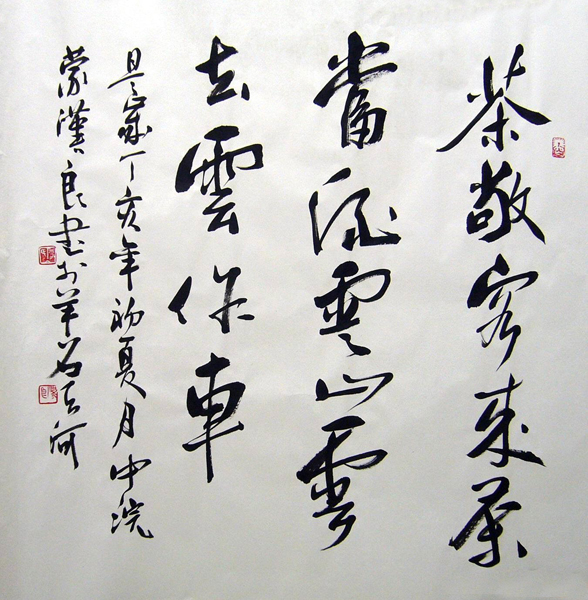 茶敬客来茶
當酒雲山雲
去雲作車
是歲丁亥年初夏月中浣
蒙漢良書於羊石天河